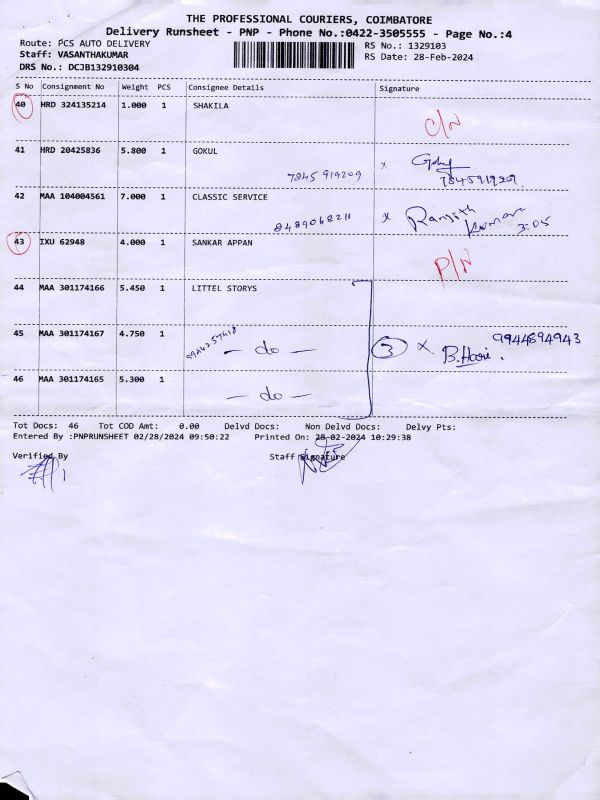 THE PROFESSIONAL COURIERS, COIMBATORE
Delivery Runsheet - PNP - Phone No.:0422-3505555 - Page No.:4
Route: PCS AUTO DELIVERY RS No.: 1329103
Staff: VASANTHAKUMAR RS Date: 28-Feb-2024
DRS No.: DCJB132910304
S No Consignment No Weight PCS Consignee Details Signature
40 HRD 324135214 1.000 1 SHAKILA
C/N
41 HRD 20425836 5.800 1 GOKUL
7845 919209 x
42 MAA 104004561 7.000 1 CLASSIC SERVICE
8489068211 x Ranjith Kumar 3.05
43 IXU 62948 4.000 1 SANKAR APPAN
P/N
44 MAA 301174166 5.450 1 LITTEL STORYS
45 MAA 301174167 4.750 1 - do - 3 x B.Hari. 9944894943
46 MAA 301174165 5.300 1 - do -
Tot Docs: 46 Tot COD Amt: 0.00 Delvd Docs: Non Delvd Docs: Delvy Pts:
Entered By :PNPRUNSHEET 02/28/2024 09:50:22 Printed On: 28-02-2024 10:29:38
Verified By Staff Signature